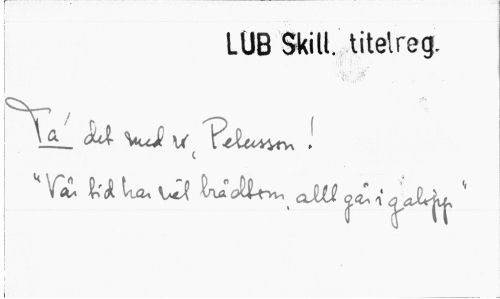 LUB Skill. titelreg.
Ta' det med ro, Petersson!
"Vår tid har väl brådtom, allt går i galopp"